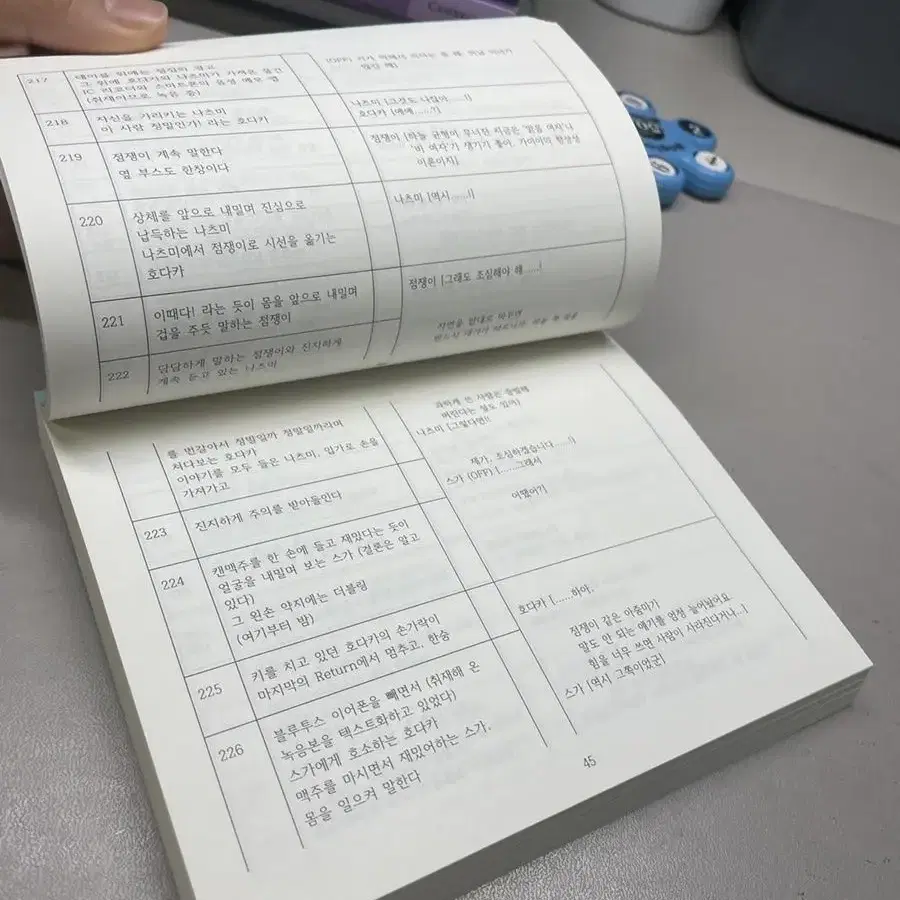 217
테이블 위에는
그 위에 호다카와 나츠미가 가져온
IC 리코더와 스마트폰의 음성 메모 앱
(취재이므로 녹음 중)
218
자신을 가리키는 나츠미
이 사람 정말인가! 라는 호다카
나츠미 [그것도 나잖아......!]
호다카 [에에......?]
219
점쟁이 계속 말한다
옆 부스도 한창이다
점쟁이 [하늘 균형이 무너진 지금은 '맑음 여자'나
'비 여자'가 생기기 좋아. 가이아의 항상성
이론이지]
220
상체를 앞으로 내밀며 진심으로
납득하는 나츠미
나츠미에서 점쟁이로 시선을 옮기는
호다카
나츠미 [역시......!]
221
이때다! 라는 듯이 몸을 앞으로 내밀며
겁을 주듯 말하는 점쟁이
점쟁이 [그래도 조심해야 해 ......]
자연을 맘대로 바꾸면
반드시 대가가 따르니까.
222
담담하게 말하는 점쟁이와 진지하게
계속 듣고 있는 나츠미
를 번갈아서 정말일까 정말일까라며
쳐다보는 호다카
이야기를 모두 들은 나츠미, 입가로 손을
가져가고
과하게 쓴 사람은 증발해
버린다는 설도 있어]
나츠미 [그렇다면!!
제가, 조심하겠습니다......!]
스가 (OFF) [......그래서
223
진지하게 주의를 받아들인다
어땠어?]
224
캔맥주를 한 손에 들고 재밌다는 듯이
얼굴을 내밀며 보는 스가 (결론은 알고
있다)
그 왼손 약지에는 더블링
(여기부터 밤)
225
키를 치고 있던 호다카의 손가락이
마지막의 Return에서 멈추고, 한숨
호다카 [......하아.
226
블루투스 이어폰을 빼면서 (취재해 온
녹음본을 텍스트화하고 있었다)
스가에게 호소하는 호다카
맥주를 마시면서 재밌어하는 스가.
몸을 일으켜 말한다
점쟁이 같은 아줌마가
말도 안 되는 얘기를 엄청 늘어놨어요.
힘을 너무 쓰면 사람이 사라진다거나...]
스가 [역시 그쪽이었군]
45